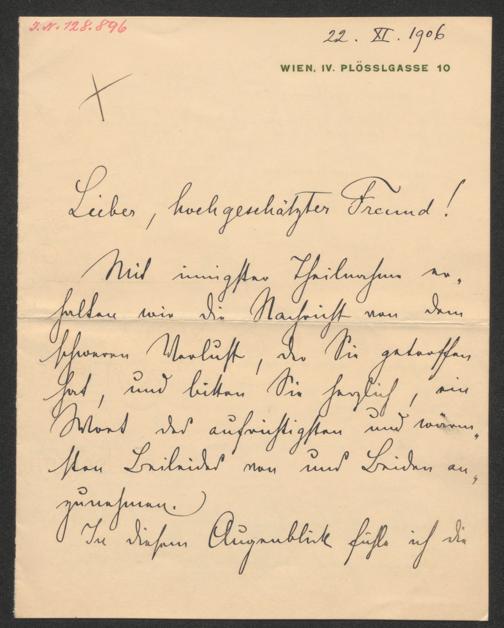 I.N. 128.896
22. XI. 1906
WIEN, IV. PLÖSSLGASSE 10
Lieber, hochgeschätzter Freund!
Mit innigster Theilnahme er-
halten wir die Nachricht von dem
schweren Verlust, der Sie getroffen
hat, und bitten Sie herzlich, ein
Wort des aufrichtigsten und wärm-
sten Beileides von uns Beiden an-
zunehmen.
In diesem Augenblick fühle ich die